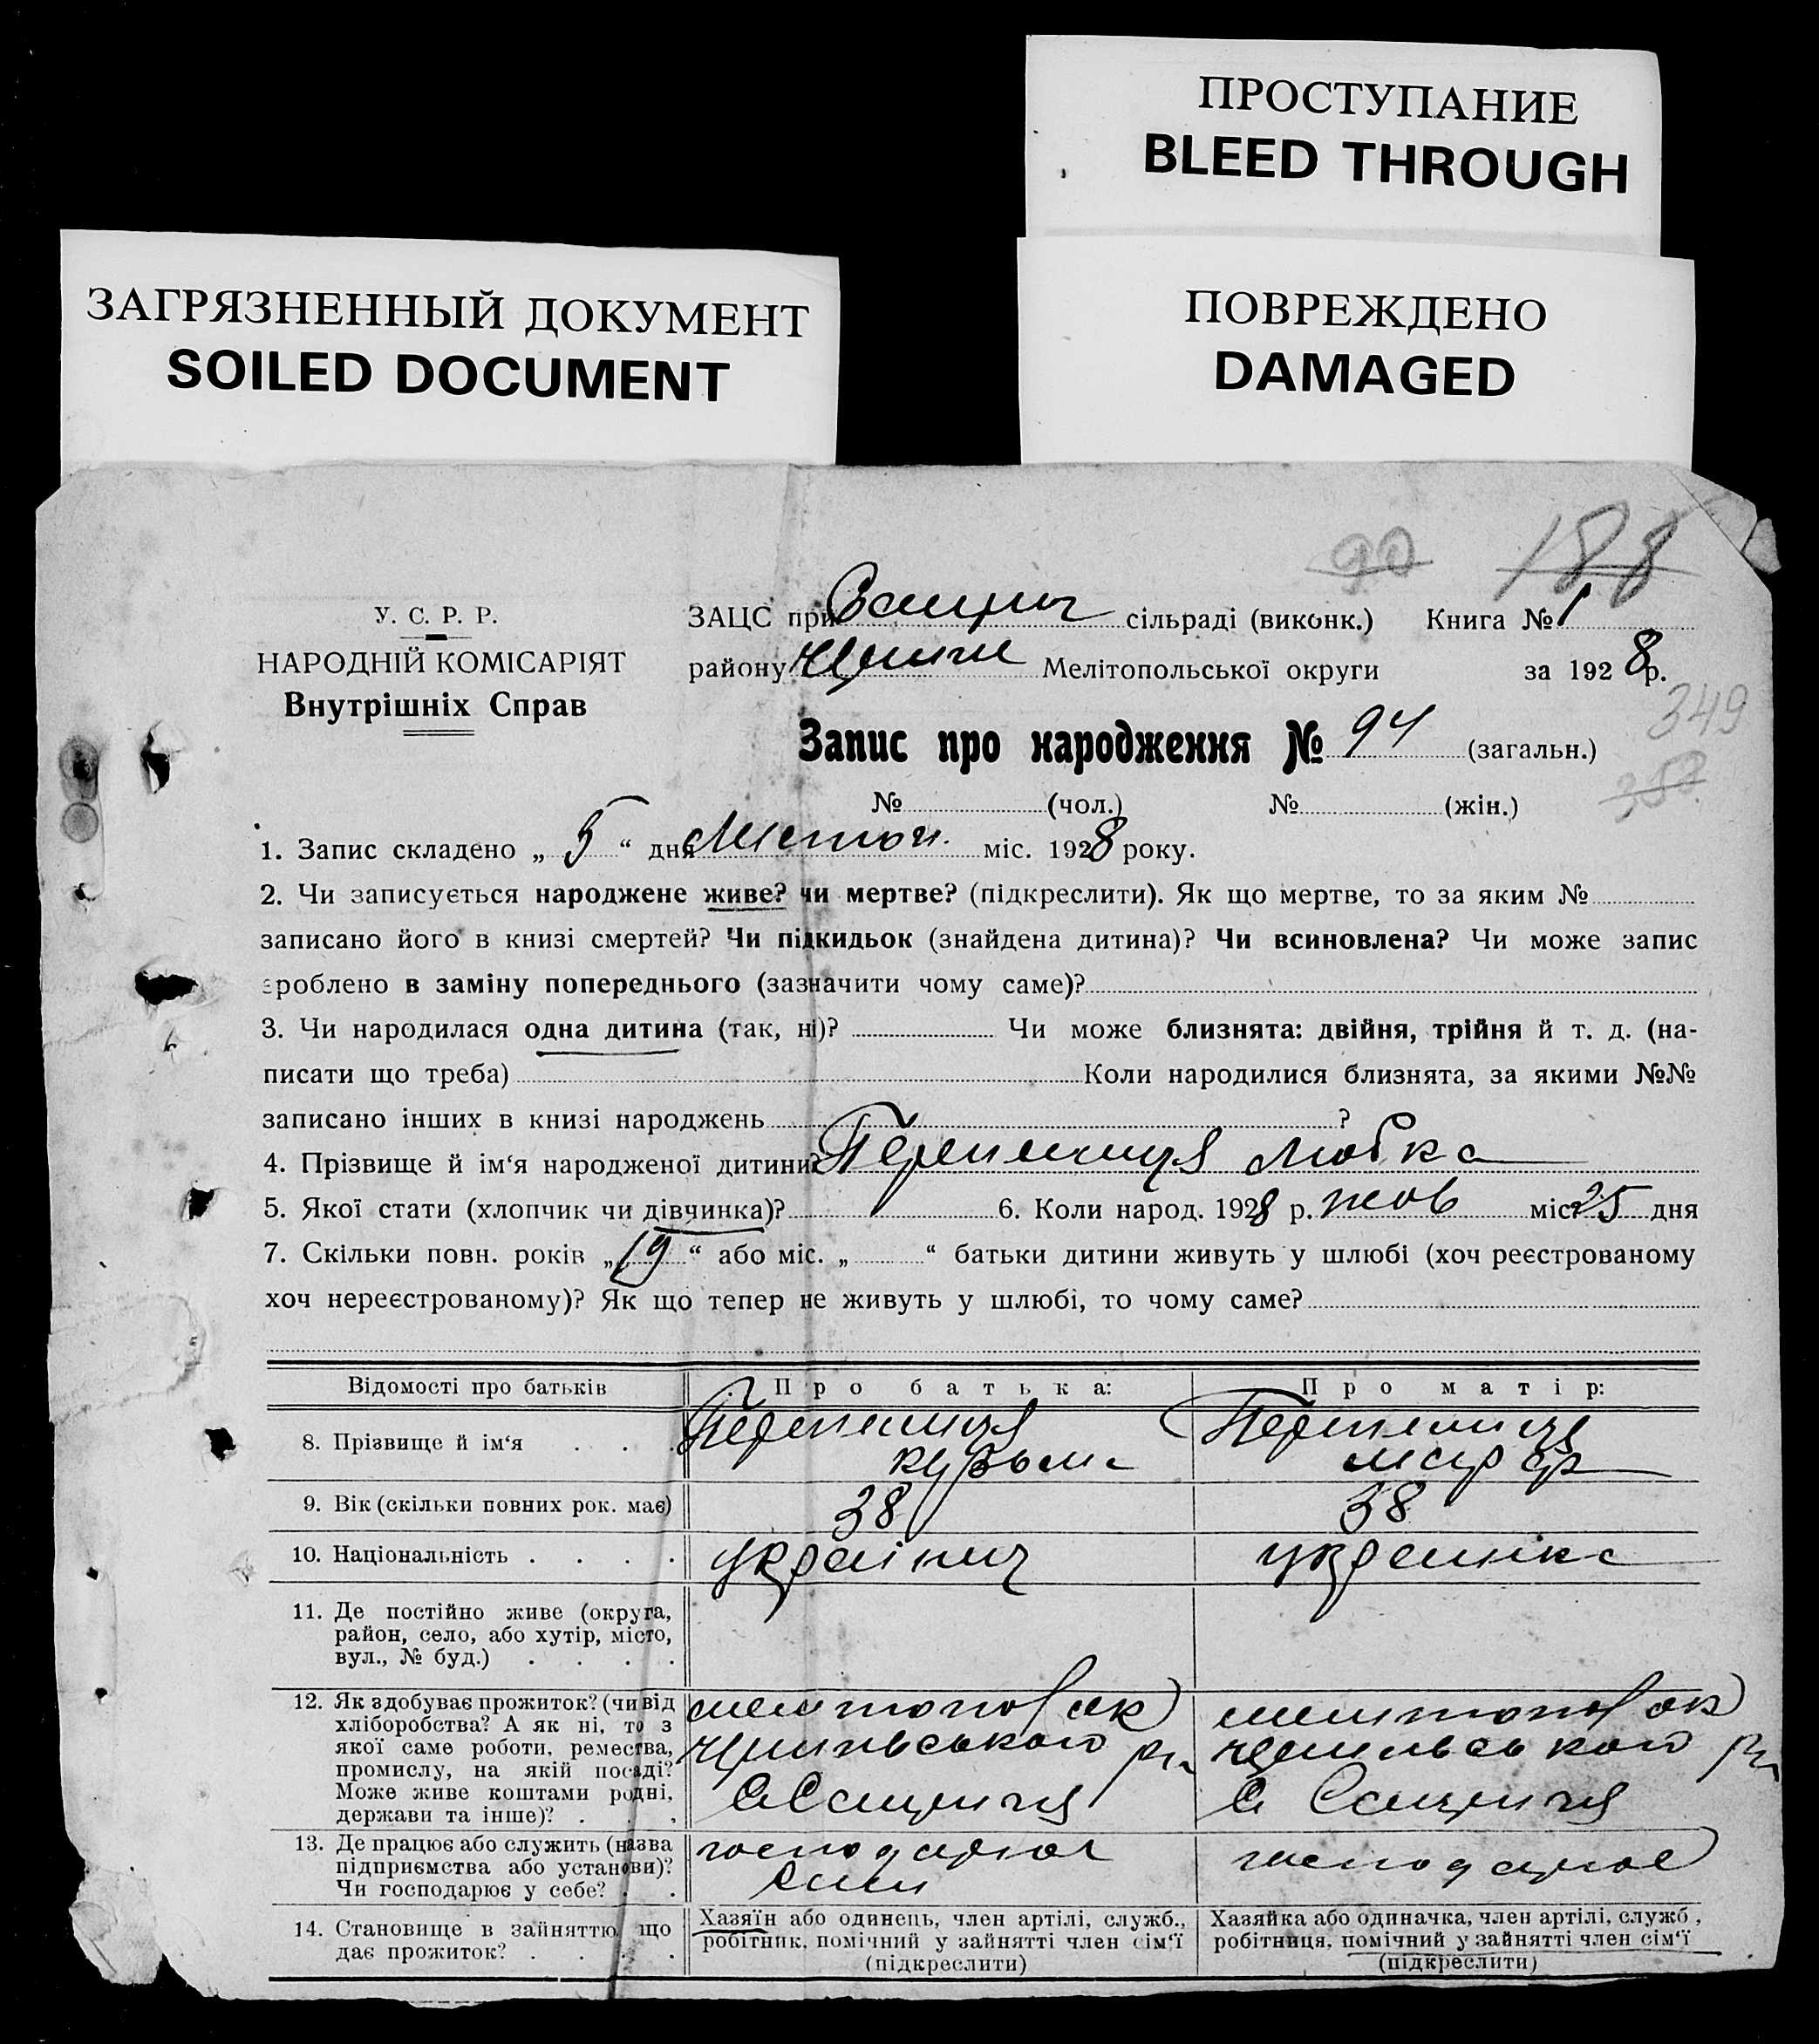 ПРОСТУПАНИЕ
BLEED THROUGH
ЗАГРЯЗНЕННЫЙ ДОКУМЕНТ
SOILED DOCUMENT
ПОВРЕЖДЕНО
DAMAGED
90 188
У. С. Р. Р.
НАРОДНІЙ КОМІСАРІЯТ
Внутрішніх Справ
ЗАЦС при сільраді (виконк.) Книга № 1
району Мелітопольської округи за 1928 р.
349
Запис про народження № 94 (загальн.)
357
№ (чол.) № (жін.)
1. Запис складено „ 5 “ дня Листоп. міс. 1928 року.
2. Чи записується народжене живе? чи мертве? (підкреслити). Як що мертве, то за яким №
записано його в книзі смертей? Чи підкидьок (знайдена дитина)? Чи всиновлена? Чи може запис
зроблено в заміну попереднього (зазначити чому саме)?
3. Чи народилася одна дитина (так, ні)? Чи може близнята: двійня, трійня й т. д. (на-
писати що треба) Коли народилися близнята, за якими №№
записано інших в книзі народжень ?
4. Прізвище й ім‘я народженої дитини? Перепелиця Любка
5. Якої стати (хлопчик чи дівчинка)? 6. Коли народ. 1928 р. жов міс. 25 дня
7. Скільки повн. років „ 19 “ або міс. „ “ батьки дитини живуть у шлюбі (хоч реєстрованому
хоч нереєстрованому)? Як що тепер не живуть у шлюбі, то чому саме?
Відомості про батьків Про батька: Про матір:
8. Прізвище й ім‘я . . . Перепелиця Перепелиця
Кузьма
9. Вік (скільки повних рок. має) 38 38
10. Національність . . . . українець українка
11. Де постійно живе (округа,
район, село, або хутір, місто,
вул., № буд.) . . . .
12. Як здобуває прожиток? (чи від
хліборобства? А як ні, то з
якої саме роботи, ремества,
промислу, на якій посаді?
Може живе коштами родні,
держави та інше)? . . ,
мелітопол ок мелітопол ок
13. Де працює або служить (назва
підприємства або установи)?
Чи господарює у себе? . .
господарює господарює
14. Становище в зайняттю, що
дає прожиток? . . . .
Хазяїн або одинець, член артілі, служб.,
робітник, помічний у зайнятті член сім‘ї
(підкреслити)
Хазяйка або одиначка, член артілі, служб.,
робітниця, помічний у зайнятті член сім‘ї
(підкреслити)